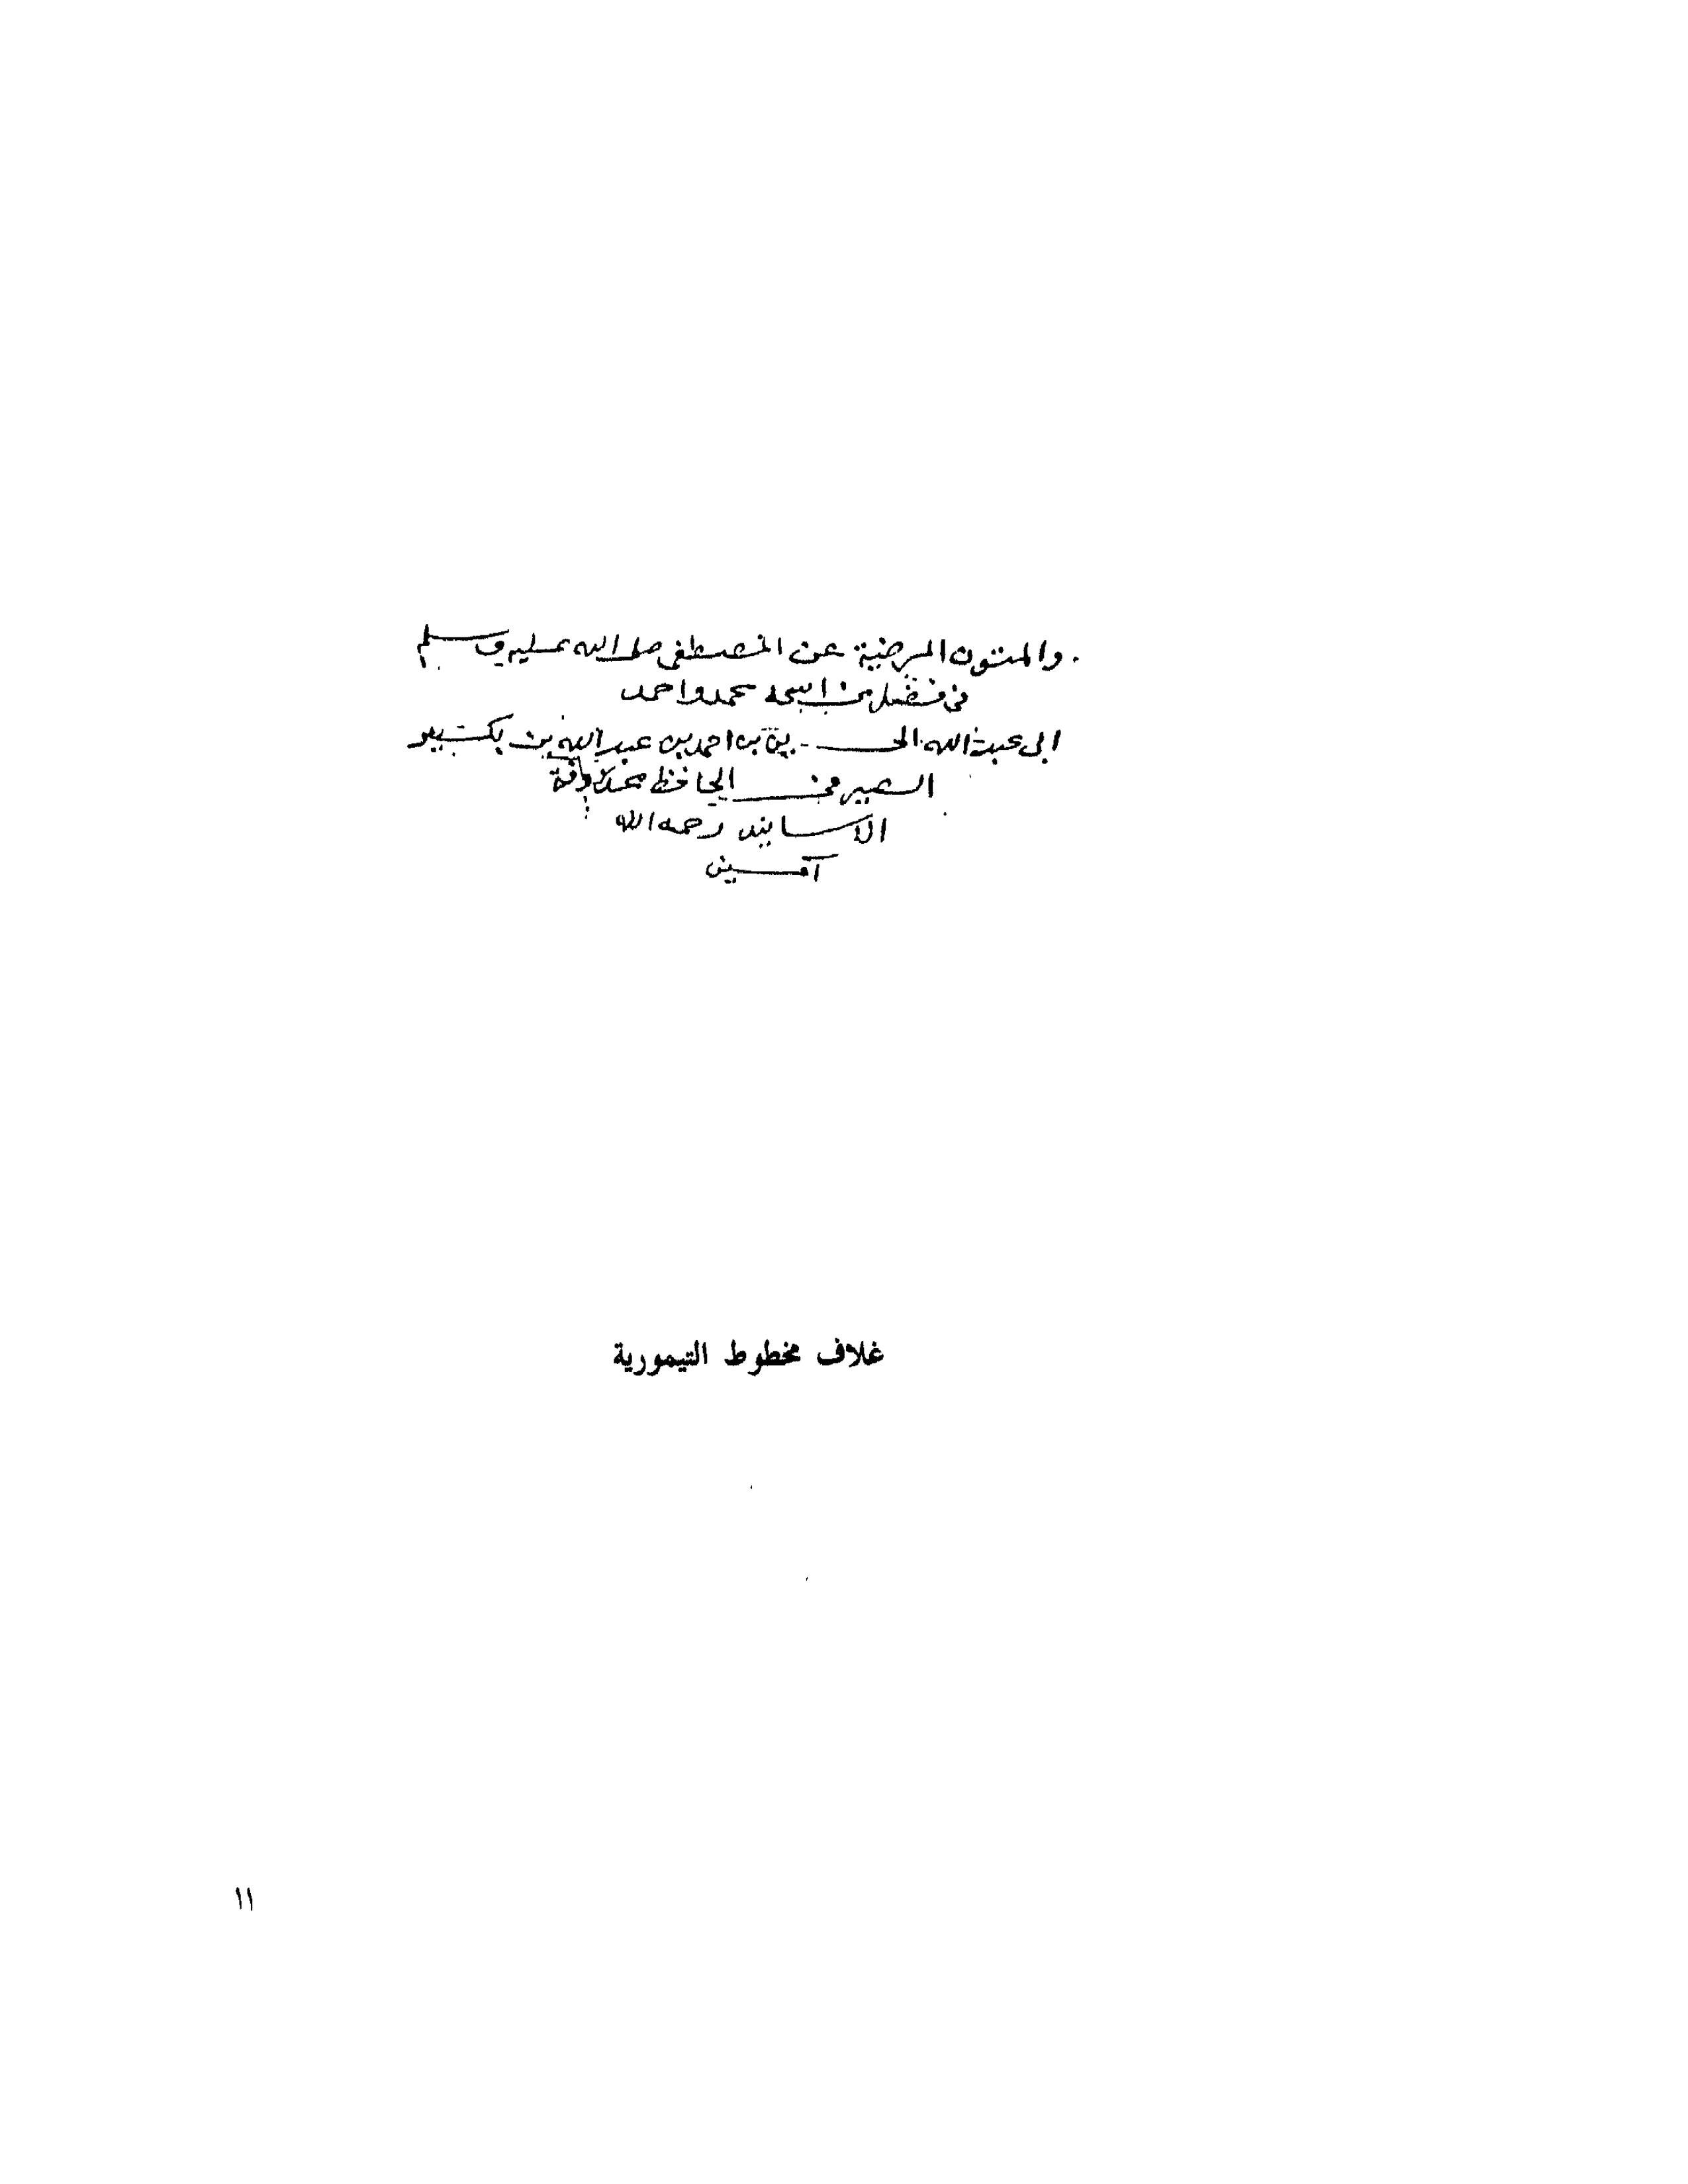 والمتون المرضية عن المصطفى صلى الله عليه وسلم
في فضل من اسمه محمد واحمد
ابي عبد الله الحسين بن احمد بن عبد الله بن بكير
الصيرفي الحافظ محذوفة
الاسانيد رحمه الله
آمين
غلاف مخطوط التيمورية
١١